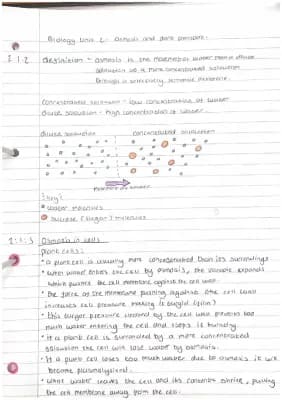 Biology Unit 2: Osmosis and plant
2.1.2 definition - osmosis is the movement of water from a dilute
solution to a more concentrated solution
through a selectively permeable membrane.
concentrated solution - low concentration of water
dilute solution - high concentration of water
dilute solution concentrated solution
movement of water
[key]
water molecules
sucrose (sugar) molecules
2.1.3 Osmosis in cells
plant cells:
• a plant cell is usually more concentrated than its surroundings
• when water enters the cell by osmosis, the vacuole expands
which pushes the cell membrane against the cell wall
• the force of the membrane pushing against the cell wall
increases cell pressure making it turgid (firm)
• this turgor pressure created by the cell wall prevents too
much water entering the cell and stops it bursting
• if a plant cell is surrounded by a more concentrated
solution the cell will lose water by osmosis.
• if a plant cell loses too much water due to osmosis it will
become plasmolysed.
• when water leaves the cell and its contents shrink, pulling
the cell membrane away from the cell.